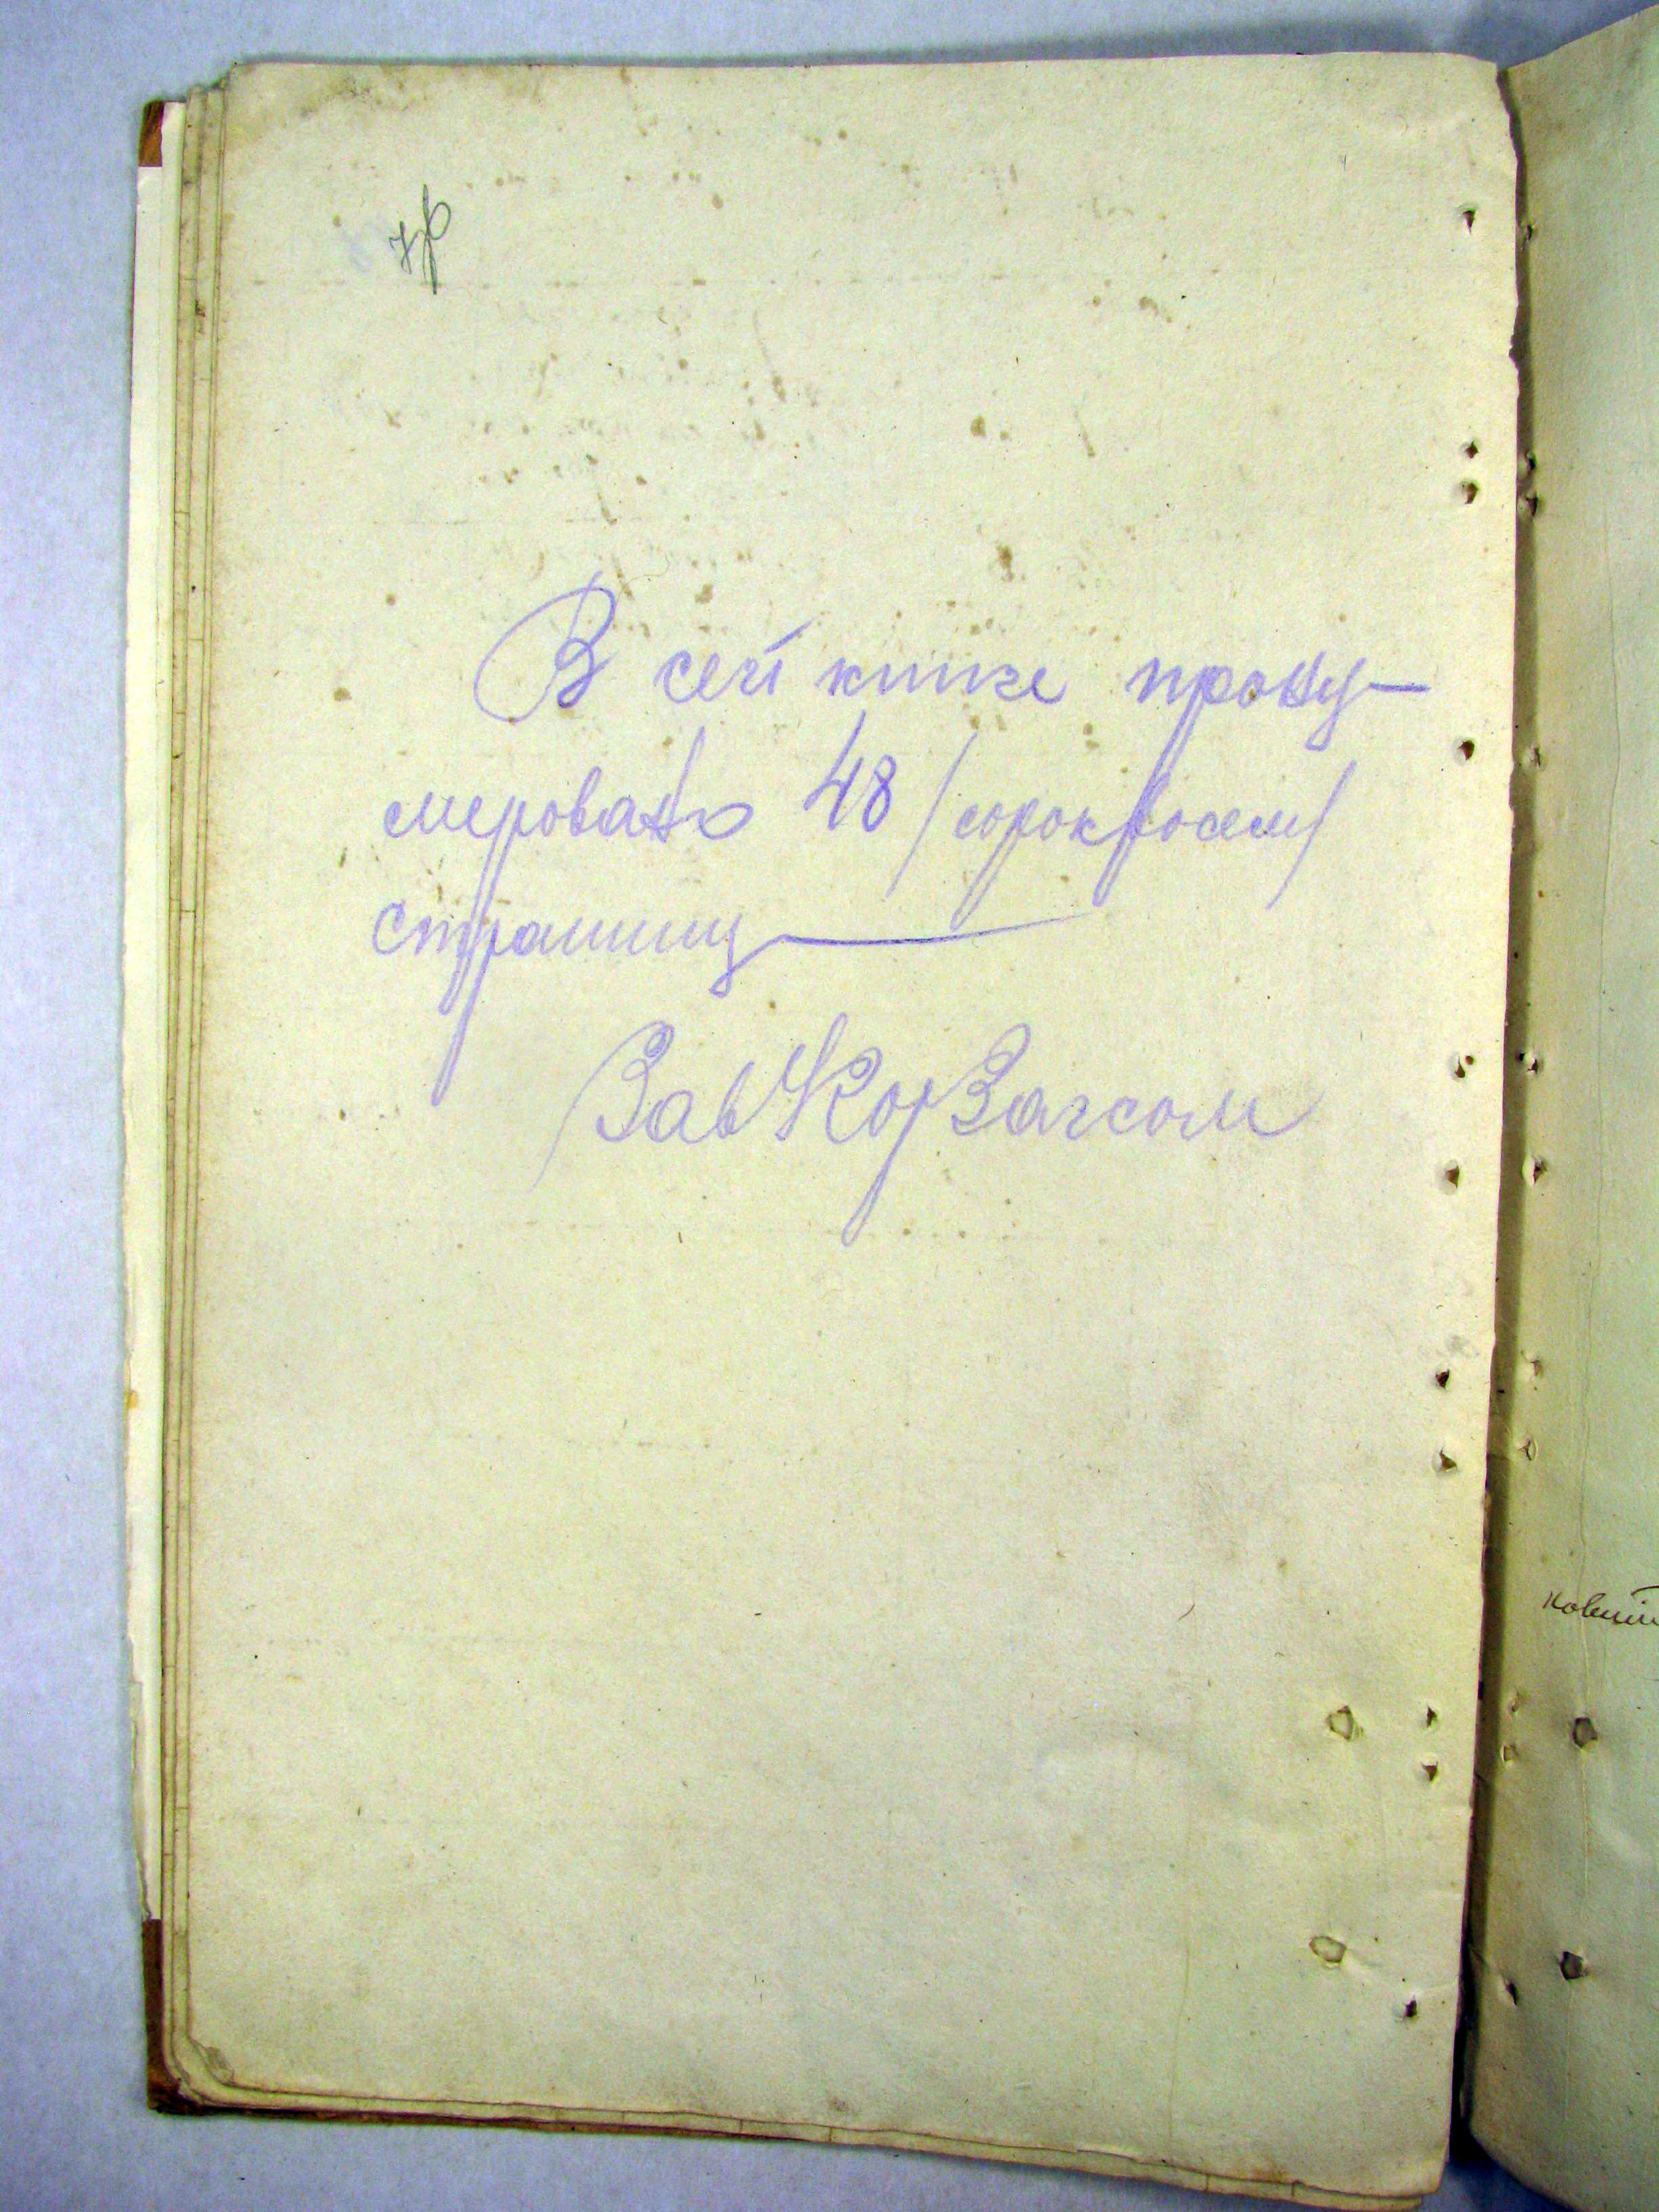 В сей книге прону-
меровано 48 /сорок восем/
страниц
Зав Кор Загсом